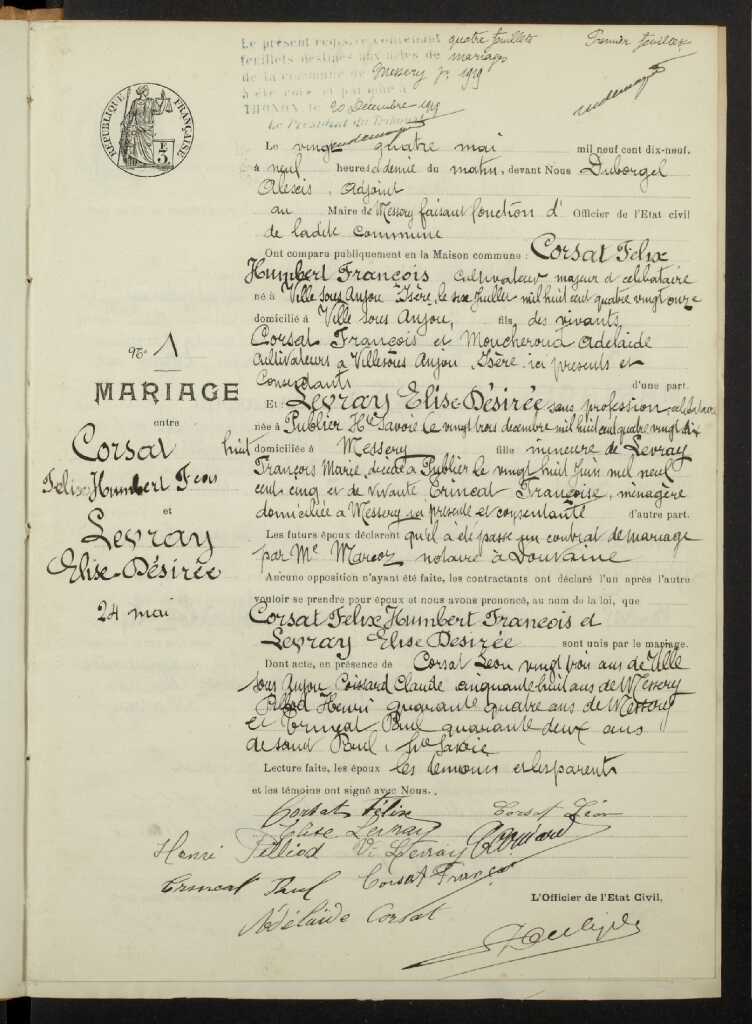 Le présent registre contenant quatre feuillets
feuillets destinés aux actes de mariages
de la commune de Messery pr 1919
a été coté et paraphé à
THONON, le 20 Décembre 1918
Le Président du Tribunal
Premier feuillet
RÉPUBLIQUE FRANÇAISE
Le vingt quatre mai mil neuf cent dix-neuf,
à neuf heures et demie du matin, devant Nous Duborgel
Alexis, Adjoint
au Maire de Messery faisant fonction d' Officier de l'Etat civil
de ladite Commune
Ont comparu publiquement en la Maison commune : Corsat Felix
Humbert François, cultivateur majeur et celibataire
né à Ville sous Anjou Isère, le six Juillet mil huit cent quatre vingt onze
domicilié à Ville sous Anjou, fils des vivants
Corsat François et Moucheroud Adelaide
cultivateurs à Ville sous Anjou Isère ici presents et
Consentants d'une part.
Et : Levray Elise-Désirée sans profession, celibataire
née à Publier Hte Savoie le vingt trois decembre mil huit cent quatre vingt dix
huit domiciliée à Messery fille mineure de Levray
François Marie, décédé à Publier le vingt huit Juin mil neuf
cent cinq et de vivante Erincat Françoise, ménagère
domiciliée à Messery ici présente et consentante d'autre part.
Les futurs époux déclarent qu'il a été passé un contrat de mariage
par Me Marcoz notaire à Douvaine
Aucune opposition n'ayant été faite, les contractants ont déclaré l'un après l'autre
vouloir se prendre pour époux et nous avons prononcé, au nom de la loi, que
Corsat Felix Humbert François et
Levray Elise Desirée sont unis par le mariage.
Dont acte, en présence de Corsat Leon vingt trois ans de Ville
sous Anjou Coissard Claude cinquante huit ans de Messery
Pilliod Henri quarante quatre ans de Messery
et Erincat Paul quarante deux ans
de saint Paul, Hte Savoie
Lecture faite, les époux les temoins et les parents
et les témoins ont signé avec Nous.
No 1
MARIAGE
entre
Corsat
Felix Humbert Fcois
et
Levray
Elise-Désirée
24 mai
Corsat Félix Corsat Léon
Elise Levray
Henri Pilliod Ve Levray
Erincat Paul Corsat François
Adélaïde Corsat
L'Officier de l'Etat Civil,